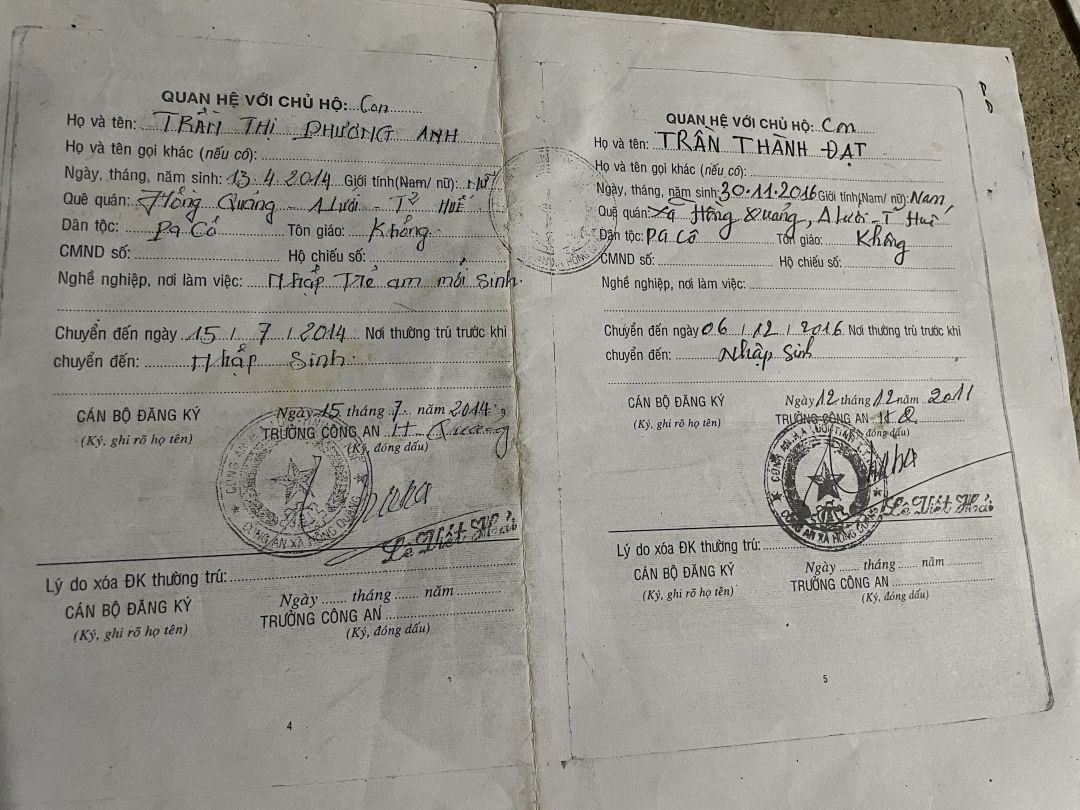 QUAN HỆ VỚI CHỦ HỘ: Con
Họ và tên: TRẦN THỊ PHƯƠNG ANH
Họ và tên gọi khác (nếu có):
Ngày, tháng, năm sinh: 13.4.2014 Giới tính(Nam/ nữ): Nữ
Quê quán: Hồng Quảng - A Lưới - T² HUẾ
Dân tộc: Pa Cô Tôn giáo: Không
CMND số: Hộ chiếu số:
Nghề nghiệp, nơi làm việc: Nhập Trẻ em mới Sinh
Chuyển đến ngày 15 / 7 / 2014 Nơi thường trú trước khi
chuyển đến: Nhập Sinh
CÁN BỘ ĐĂNG KÝ
(Ký, ghi rõ họ tên)
Ngày 15 tháng 7 năm 2014
TRƯỞNG CÔNG AN H Quảng
(Ký, đóng dấu)
CÔNG AN XÃ HỒNG QUẢNG
Lê Viết Hải
Lý do xóa ĐK thường trú:
CÁN BỘ ĐĂNG KÝ
(Ký, ghi rõ họ tên)
Ngày ...... tháng ...... năm
TRƯỞNG CÔNG AN
(Ký, đóng dấu)
4
QUAN HỆ VỚI CHỦ HỘ: Con
Họ và tên: TRẦN THÀNH ĐẠT
Họ và tên gọi khác (nếu có):
Ngày, tháng, năm sinh: 30.11.2016 Giới tính(Nam/ nữ): Nam
Quê quán: Xã Hồng Quảng, A Lưới - T² Huế
Dân tộc: Pa Cô Tôn giáo: Không
CMND số: Hộ chiếu số:
Nghề nghiệp, nơi làm việc:
Chuyển đến ngày 06 / 12 / 2016 Nơi thường trú trước khi
chuyển đến: Nhập Sinh
CÁN BỘ ĐĂNG KÝ
(Ký, ghi rõ họ tên)
Ngày 12 tháng 12 năm 2011
TRƯỞNG CÔNG AN H Q
(Ký, đóng dấu)
CÔNG AN XÃ HỒNG QUẢNG
Lê Viết Hải
Lý do xóa ĐK thường trú:
CÁN BỘ ĐĂNG KÝ
(Ký, ghi rõ họ tên)
Ngày ...... tháng ...... năm
TRƯỞNG CÔNG AN
(Ký, đóng dấu)
5